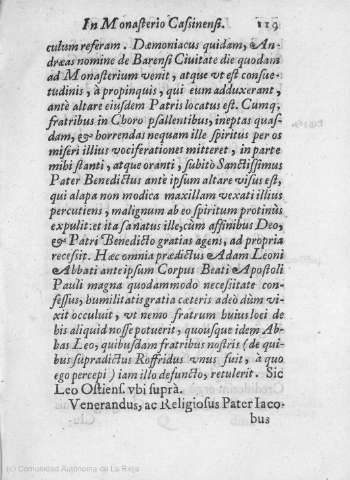 In Monasterio Cassinensi. 119
culum referam. Dæmoniacus quidam, An-
dreas nomine de Barensi Ciuitate die quodam
ad Monasterium venit, atque vt est consue-
tudinis, à propinquis, qui eum adduxerant,
antè altare eiusdem Patris locatus est. Cumq;
fratribus in Choro psallentibus, ineptas quas-
dam, & horrendas nequam ille spiritus per os
miseri illius vociferationes mitteret, in parte
mihi stanti, atque oranti, subitò Sanctissimus
Pater Benedictus ante ipsum altare visus est,
qui alapa non modica maxillam vexati illius
percutiens, malignum ab eo spiritum protinùs
expulit: et ita sanatus ille, cùm affinibus Deo,
& Patri Benedicto gratias agens, ad propria
recessit. Hæc omnia prædictus Adam Leoni
Abbati ante ipsum Corpus Beati Apostoli
Pauli magna quodammodo necessitate con-
fessus, humilitatis gratia cæteris adeò dùm vi-
xit occuluit, vt nemo fratrum huius loci de
his aliquid nosse potuerit, quousque idem Ab-
bas Leo, quibusdam fratribus nostris (de qui-
bus supradictus Roffridus vnus fuit, à quo
ego percepi) iam illo defuncto, retulerit. Sic
Leo Ostiens. vbi suprà.
Venerandus, ac Religiosus Pater Iaco-
bus
(c) Comunidad Autónoma de La Rioja